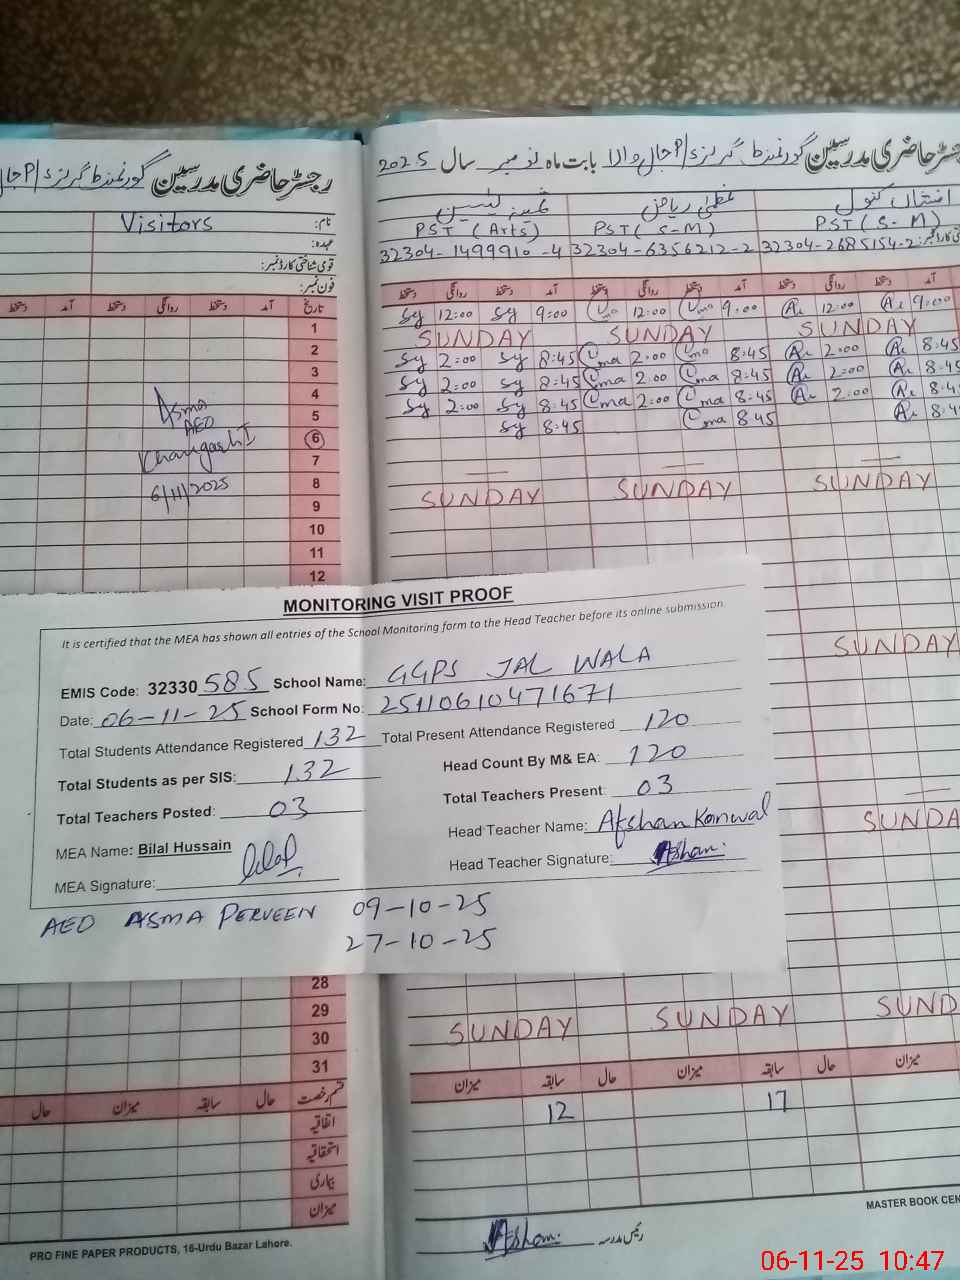 رجسٹر حاضری مدرسین گورنمنٹ گرلز P/ا جال
Visitors
نام:
عہدہ:
قومی شناختی کارڈ نمبر:
فون نمبر:
تاریخ آمد دستخط روانگی دستخط آمد دستخط
1
2
3
4
5
6
7
8
9
10
11
12
Asma
AEO
Khangarh I
6/11/2025
رجسٹر حاضری مدرسین گورنمنٹ گرلز P/ا جال والا بابت ماہ نومبر سال 2025
افشاں کنول عظمیٰ ریاض
PST (Arts) PST (S-M) PST (S-M)
32304-1499910-4 32304-6356212-2 32304-2685154-2
دستخط روانگی دستخط آمد دستخط روانگی دستخط آمد دستخط روانگی دستخط آمد
Sy 12:00 Sy 9:00 Uma 12:00 Uma 9:00 Ar 12:00 Ar 9:00
SUNDAY SUNDAY SUNDAY
Sy 2:00 Sy 8:45 Uma 2:00 Uma 8:45 Ar 2:00 Ar 8:45
Sy 2:00 Sy 8:45 Uma 2:00 Uma 8:45 Ar 2:00 Ar 8:45
Sy 2:00 Sy 8:45 Uma 2:00 Uma 8:45 Ar 2:00 Ar 8:4
Sy 8:45 Uma 8:45 Ar 8:4
SUNDAY SUNDAY SUNDAY
SUNDAY
SUNDA
MONITORING VISIT PROOF
It is certified that the MEA has shown all entries of the School Monitoring form to the Head Teacher before its online submission.
EMIS Code: 32330 585 School Name: GGPS JAL WALA
Date: 06-11-25 School Form No: 25110610471671
Total Students Attendance Registered 132 Total Present Attendance Registered 120
Total Students as per SIS: 132 Head Count By M& EA: 120
Total Teachers Posted: 03 Total Teachers Present: 03
MEA Name: Bilal Hussain Head Teacher Name: Afshan Kanwal
MEA Signature: Bilal Head Teacher Signature: Afshan.
AEO ASMA PERVEEN 09-10-25
27-10-25
28
29
30
31
SUNDAY SUNDAY SUND
قسم رخصت حال سابقہ میزان حال
اتفاقیہ
استحقاقیہ
بیماری
میزان
میزان سابقہ حال میزان سابقہ حال میزان
12 17
Afshan. رئیس مدرسہ
PRO FINE PAPER PRODUCTS, 16-Urdu Bazar Lahore.
MASTER BOOK CEN
06-11-25 10:47